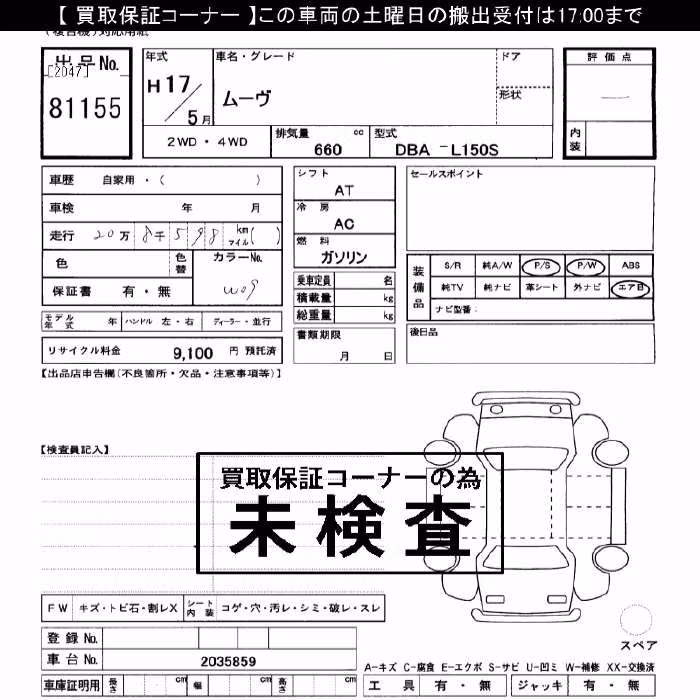 【 買取保証コーナー 】この車両の土曜日の搬出受付は17:00まで
(複合機)対応用紙
出品No.
[2047]
81155
年式
H17/5月
車名・グレード
ムーヴ
ドア
形状
評価点
—
内装
2WD・4WD
排気量 660 cc
型式 DBA -L150S
車歴 自家用・( )
車検 年 月
走行 20万8千598 km マイル( )
色
色替
カラーNo.
W09
保証書 有・無
モデル年式 年 ハンドル 左・右 ディーラー・並行
リサイクル料金 9,100 円 預託済
シフト
AT
冷房
AC
燃料
ガソリン
乗車定員 名
積載量 kg
総重量 kg
書類期限
月 日
セールスポイント
装備品
S/R 純A/W P/S P/W ABS
純TV 純ナビ 革シート 外ナビ エアB
ナビ型番:
後日品
【出品店申告欄(不良箇所・欠品・注意事項等)】
【検査員記入】
買取保証コーナーの為
未検査
FW キズ・トビ石・割レX シート内装 コゲ・穴・汚レ・シミ・破レ・スレ
登録No.
車台No. 2035859
車庫証明用 長さ cm 幅 cm 高さ cm
スペア
A-キズ C-腐食 E-エクボ S-サビ U-凹ミ W-補修 XX-交換済
工具 有・無 ジャッキ 有・無